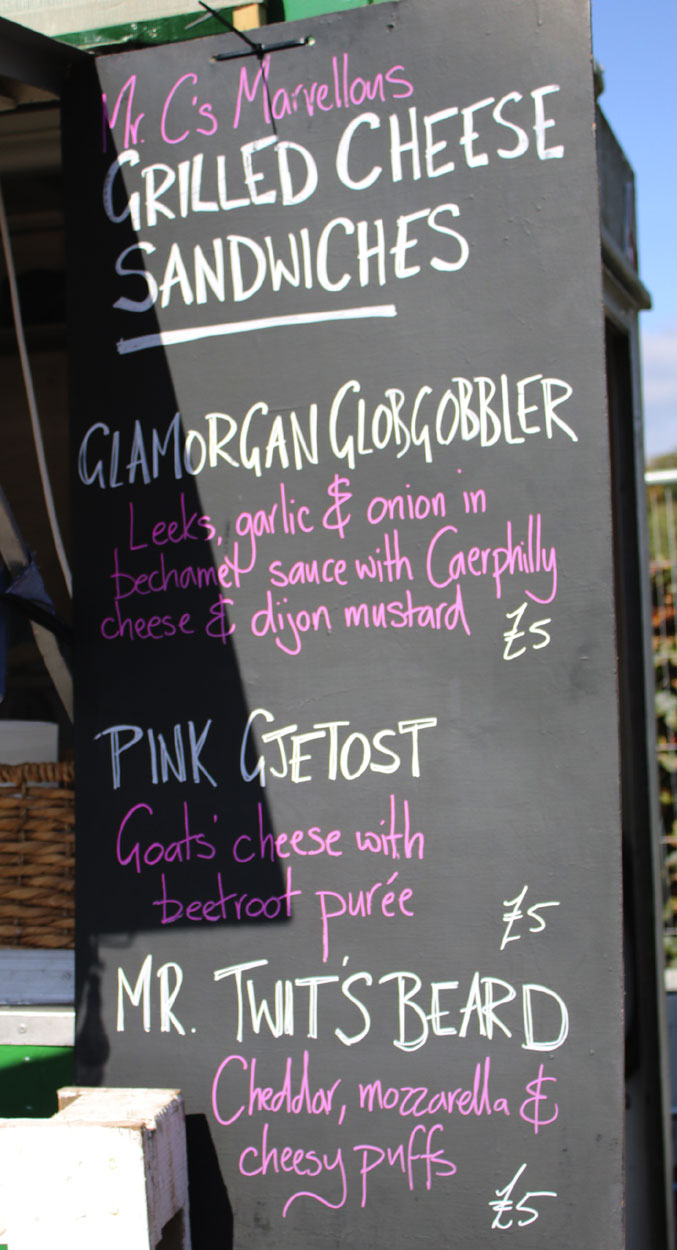 Mr. C's Marvellous
GRILLED CHEESE
SANDWICHES
GLAMORGAN GLOBGOBBLER
Leeks, garlic & onion in
bechamel sauce with Caerphilly
cheese & dijon mustard £5
PINK GJETOST
Goats' cheese with
beetroot purée £5
MR. TWIT'S BEARD
Cheddar, mozzarella &
cheesy puffs £5